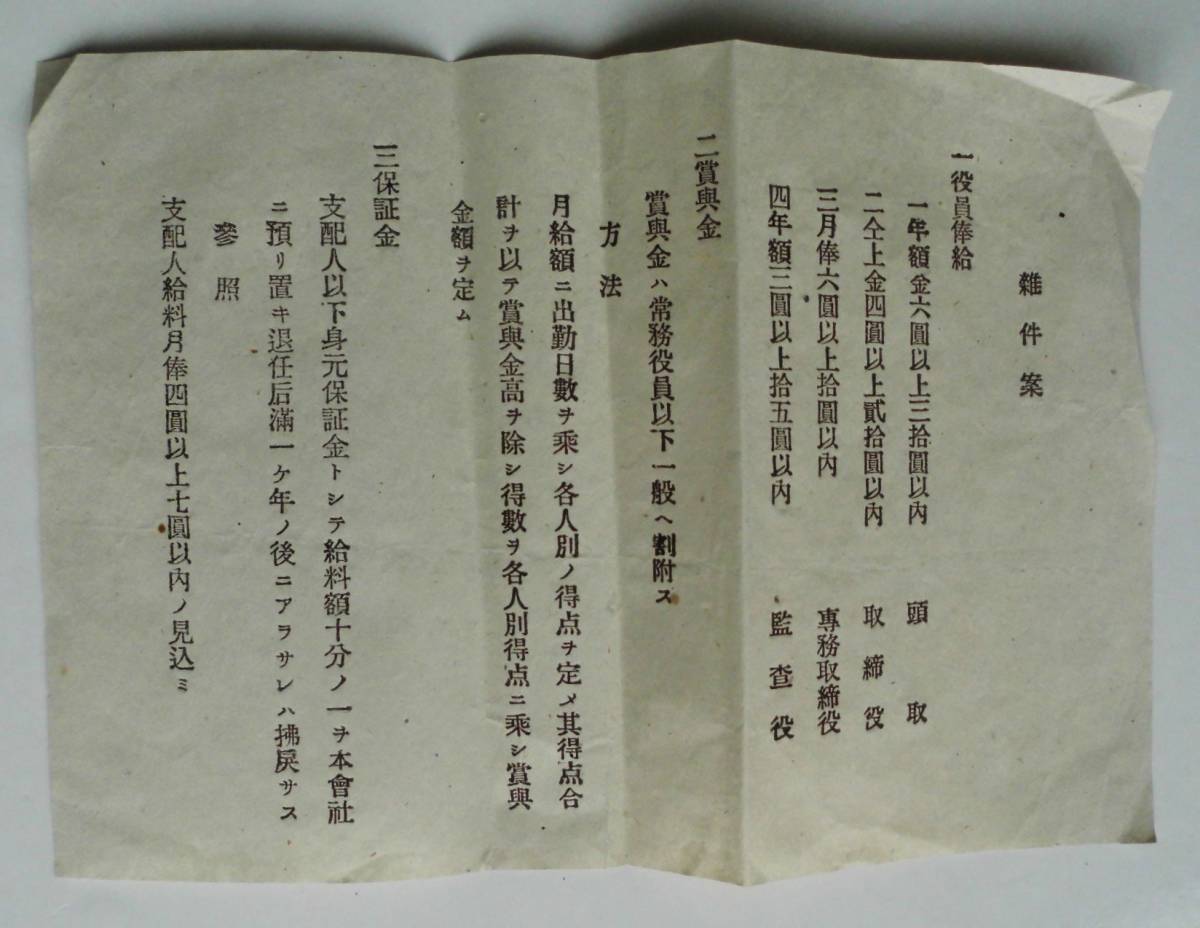 雜件案
一役員俸給
一年額金六圓以上三拾圓以內　頭取
二仝上金四圓以上貳拾圓以內　取締役
三月俸六圓以上拾圓以內　專務取締役
四年額三圓以上拾五圓以內　監查役
二賞與金
賞與金ハ常務役員以下一般ヘ割附ス
方法
月給額ニ出勤日數ヲ乘シ各人別ノ得点ヲ定メ其得点合
計ヲ以テ賞與金高ヲ除シ得數ヲ各人別得点ニ乘シ賞與
金額ヲ定ム
三保証金
支配人以下身元保証金トシテ給料額十分ノ一ヲ本會社
ニ預リ置キ退任后滿一ケ年ノ後ニアラサレハ拂戾サス
參照
支配人給料月俸四圓以上七圓以內ノ見込ミ